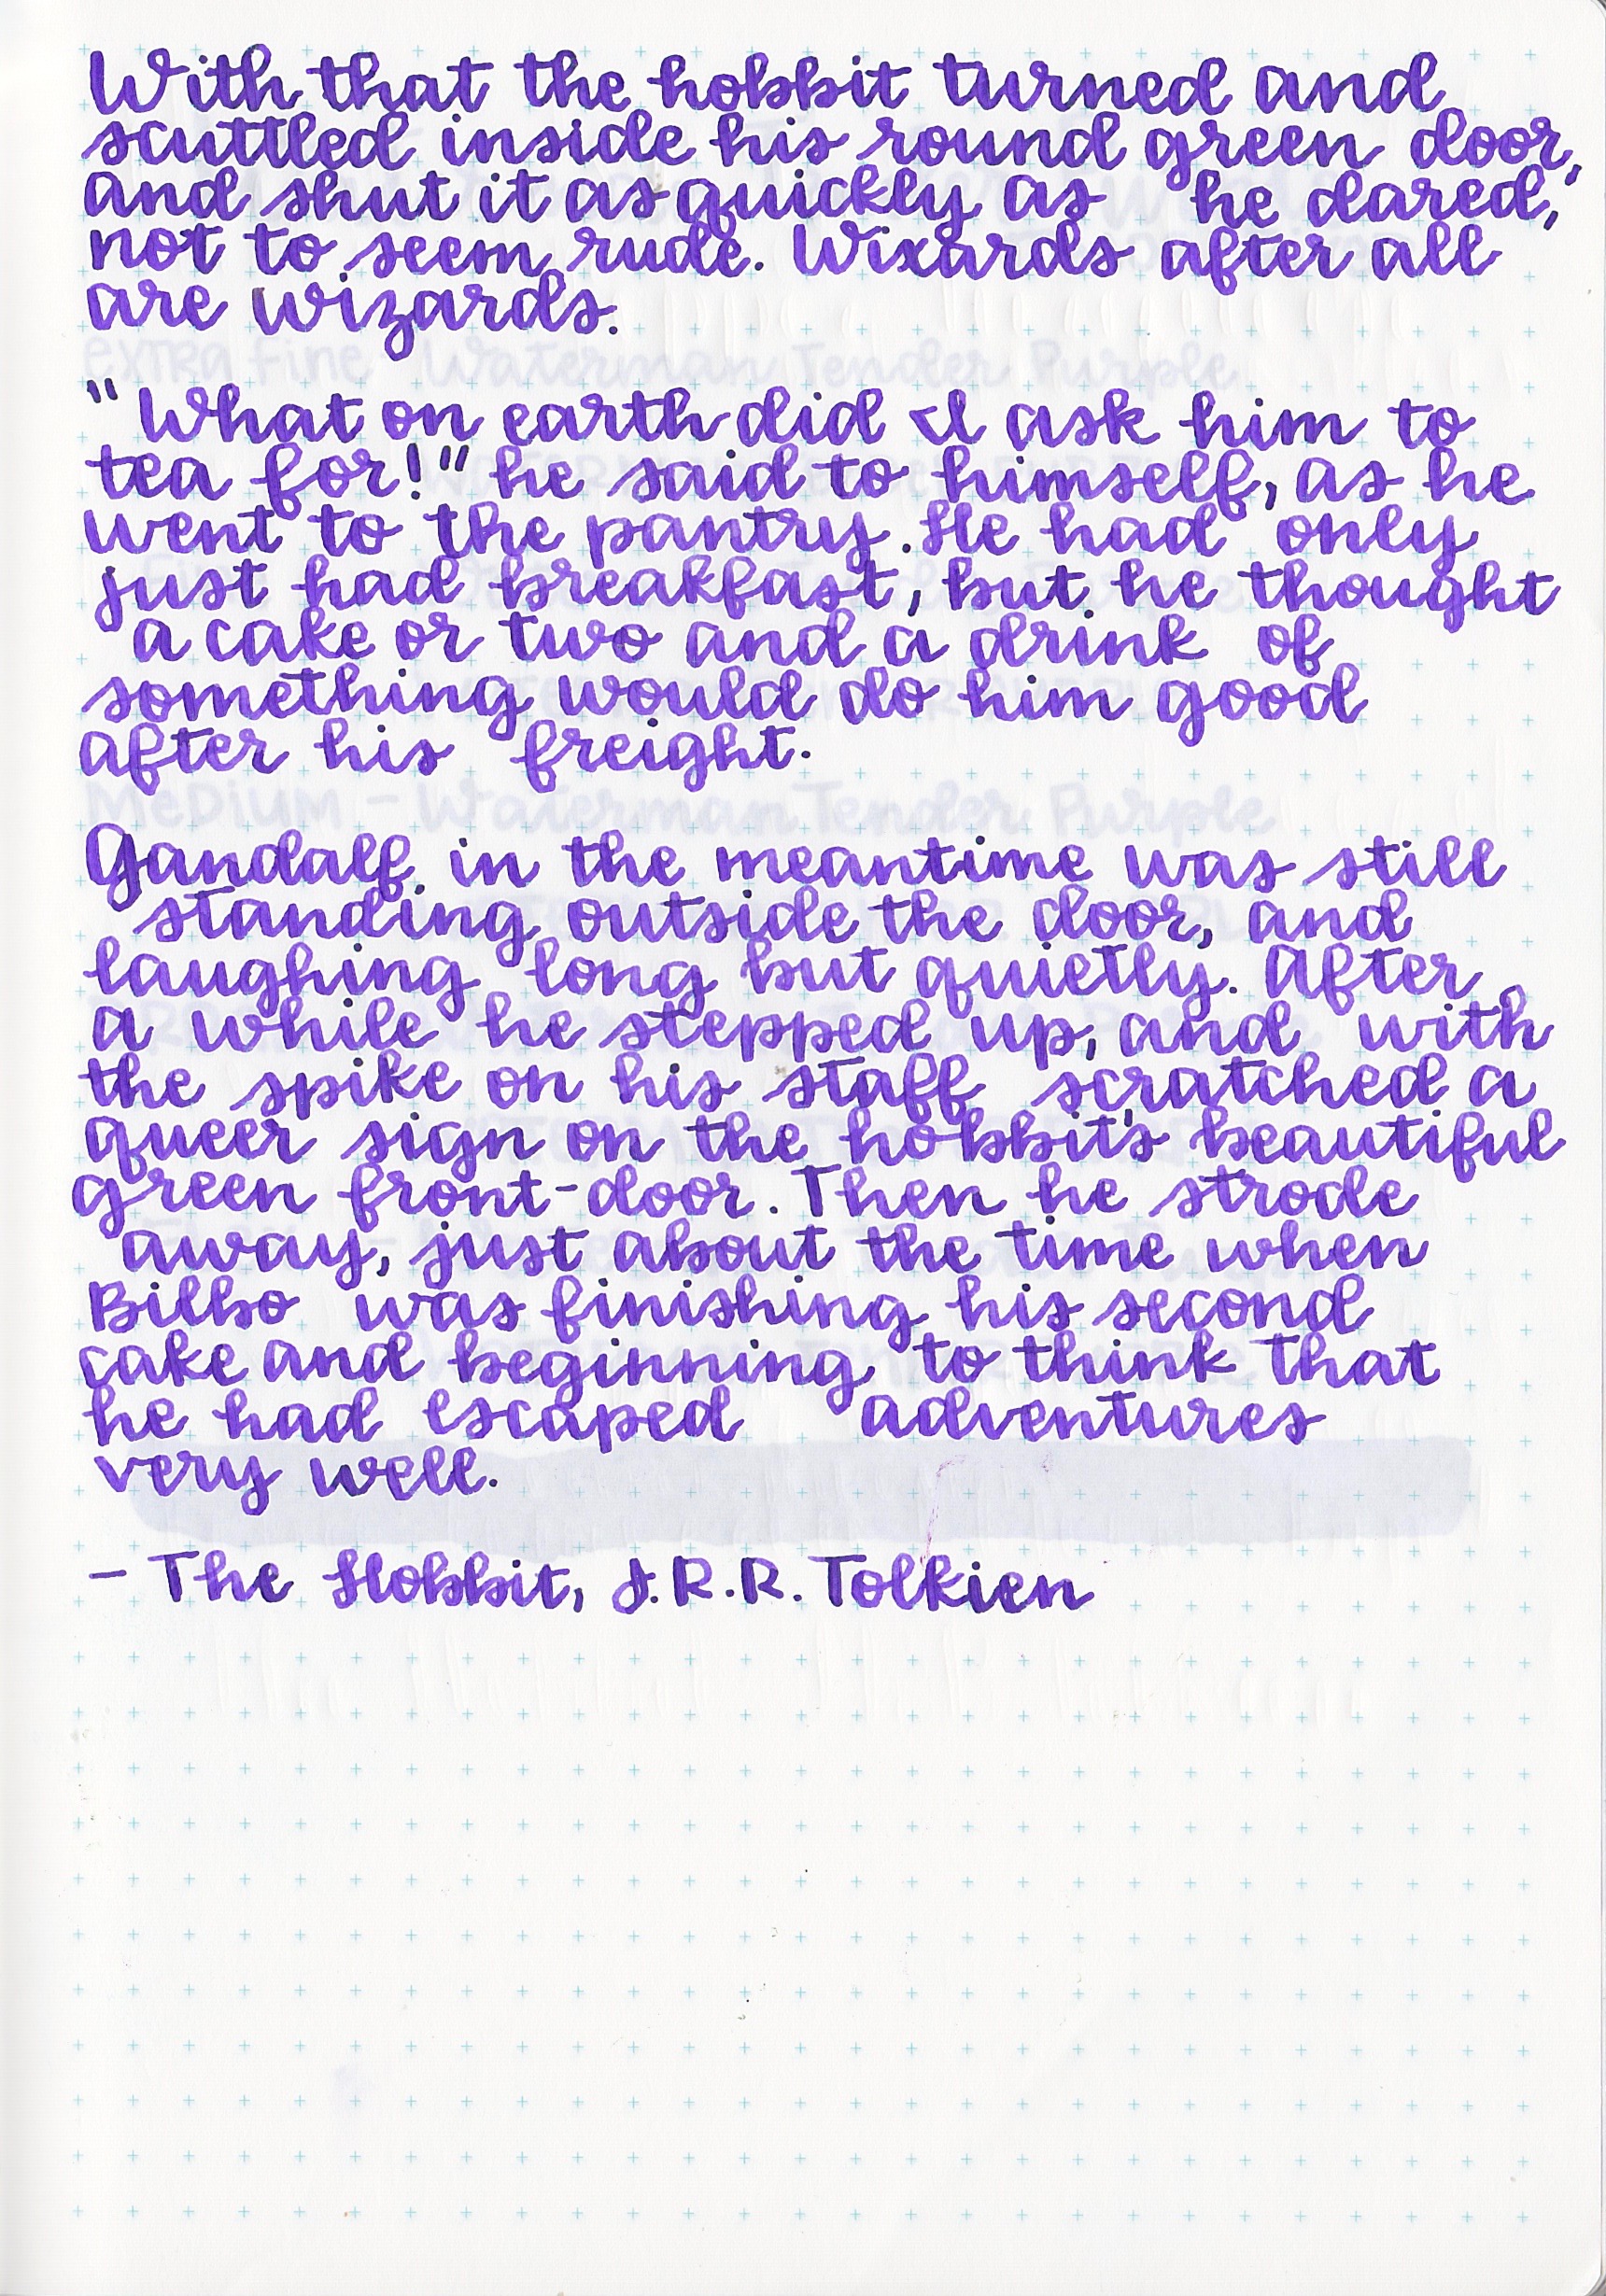 With that the hobbit turned and
scuttled inside his round green door,
and shut it as quickly as he dared,
not to seem rude. Wixards after all
are wizards.
extra fine Waterman Tender Purple
"What on earth did I ask him to
tea for!" he said to himself, as he
went to the pantry. He had only
just had breakfast, but he thought
a cake or two and a drink of
something would do him good
after his freight.
Medium - Waterman Tender Purple
Gandalf in the meantime was still
standing outside the door, and
laughing long but quietly. After
a while he stepped up, and with
the spike on his staff scratched a
queer sign on the hobbit's beautiful
green front-door. Then he strode
away, just about the time when
Bilbo was finishing his second
cake and beginning to think that
he had escaped adventures
very well.
- The Hobbit, J.R.R. Tolkien